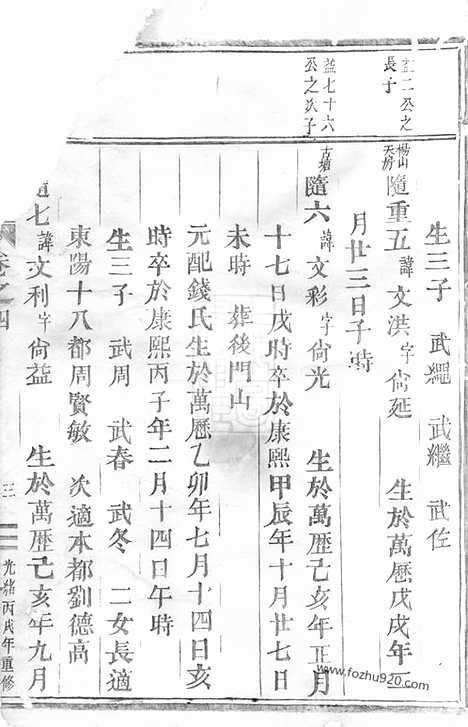 生三子 武繩 武繼 武佐
益二公之
長子
楊山
天房
隨重五諱文洪字尙延 生於萬歷戊戌年
月廿三日子時
益七十六
公之次子
古塘
隨六諱文彩字尙光 生於萬歷己亥年正月
十七日戌時卒於康熙甲辰年十月廿七日
未時 葬後門山
元配錢氏生於萬歷乙卯年七月十四日亥
時卒於康熙丙子年二月十四日午時
生三子 武周 武春 武冬 二女長適
東陽十八都周賢敏 次適本都劉德高
七諱文利字尙益 生於萬歷己亥年九月
卷之四
三
光緒丙戌年重修
www.fozhu920.com